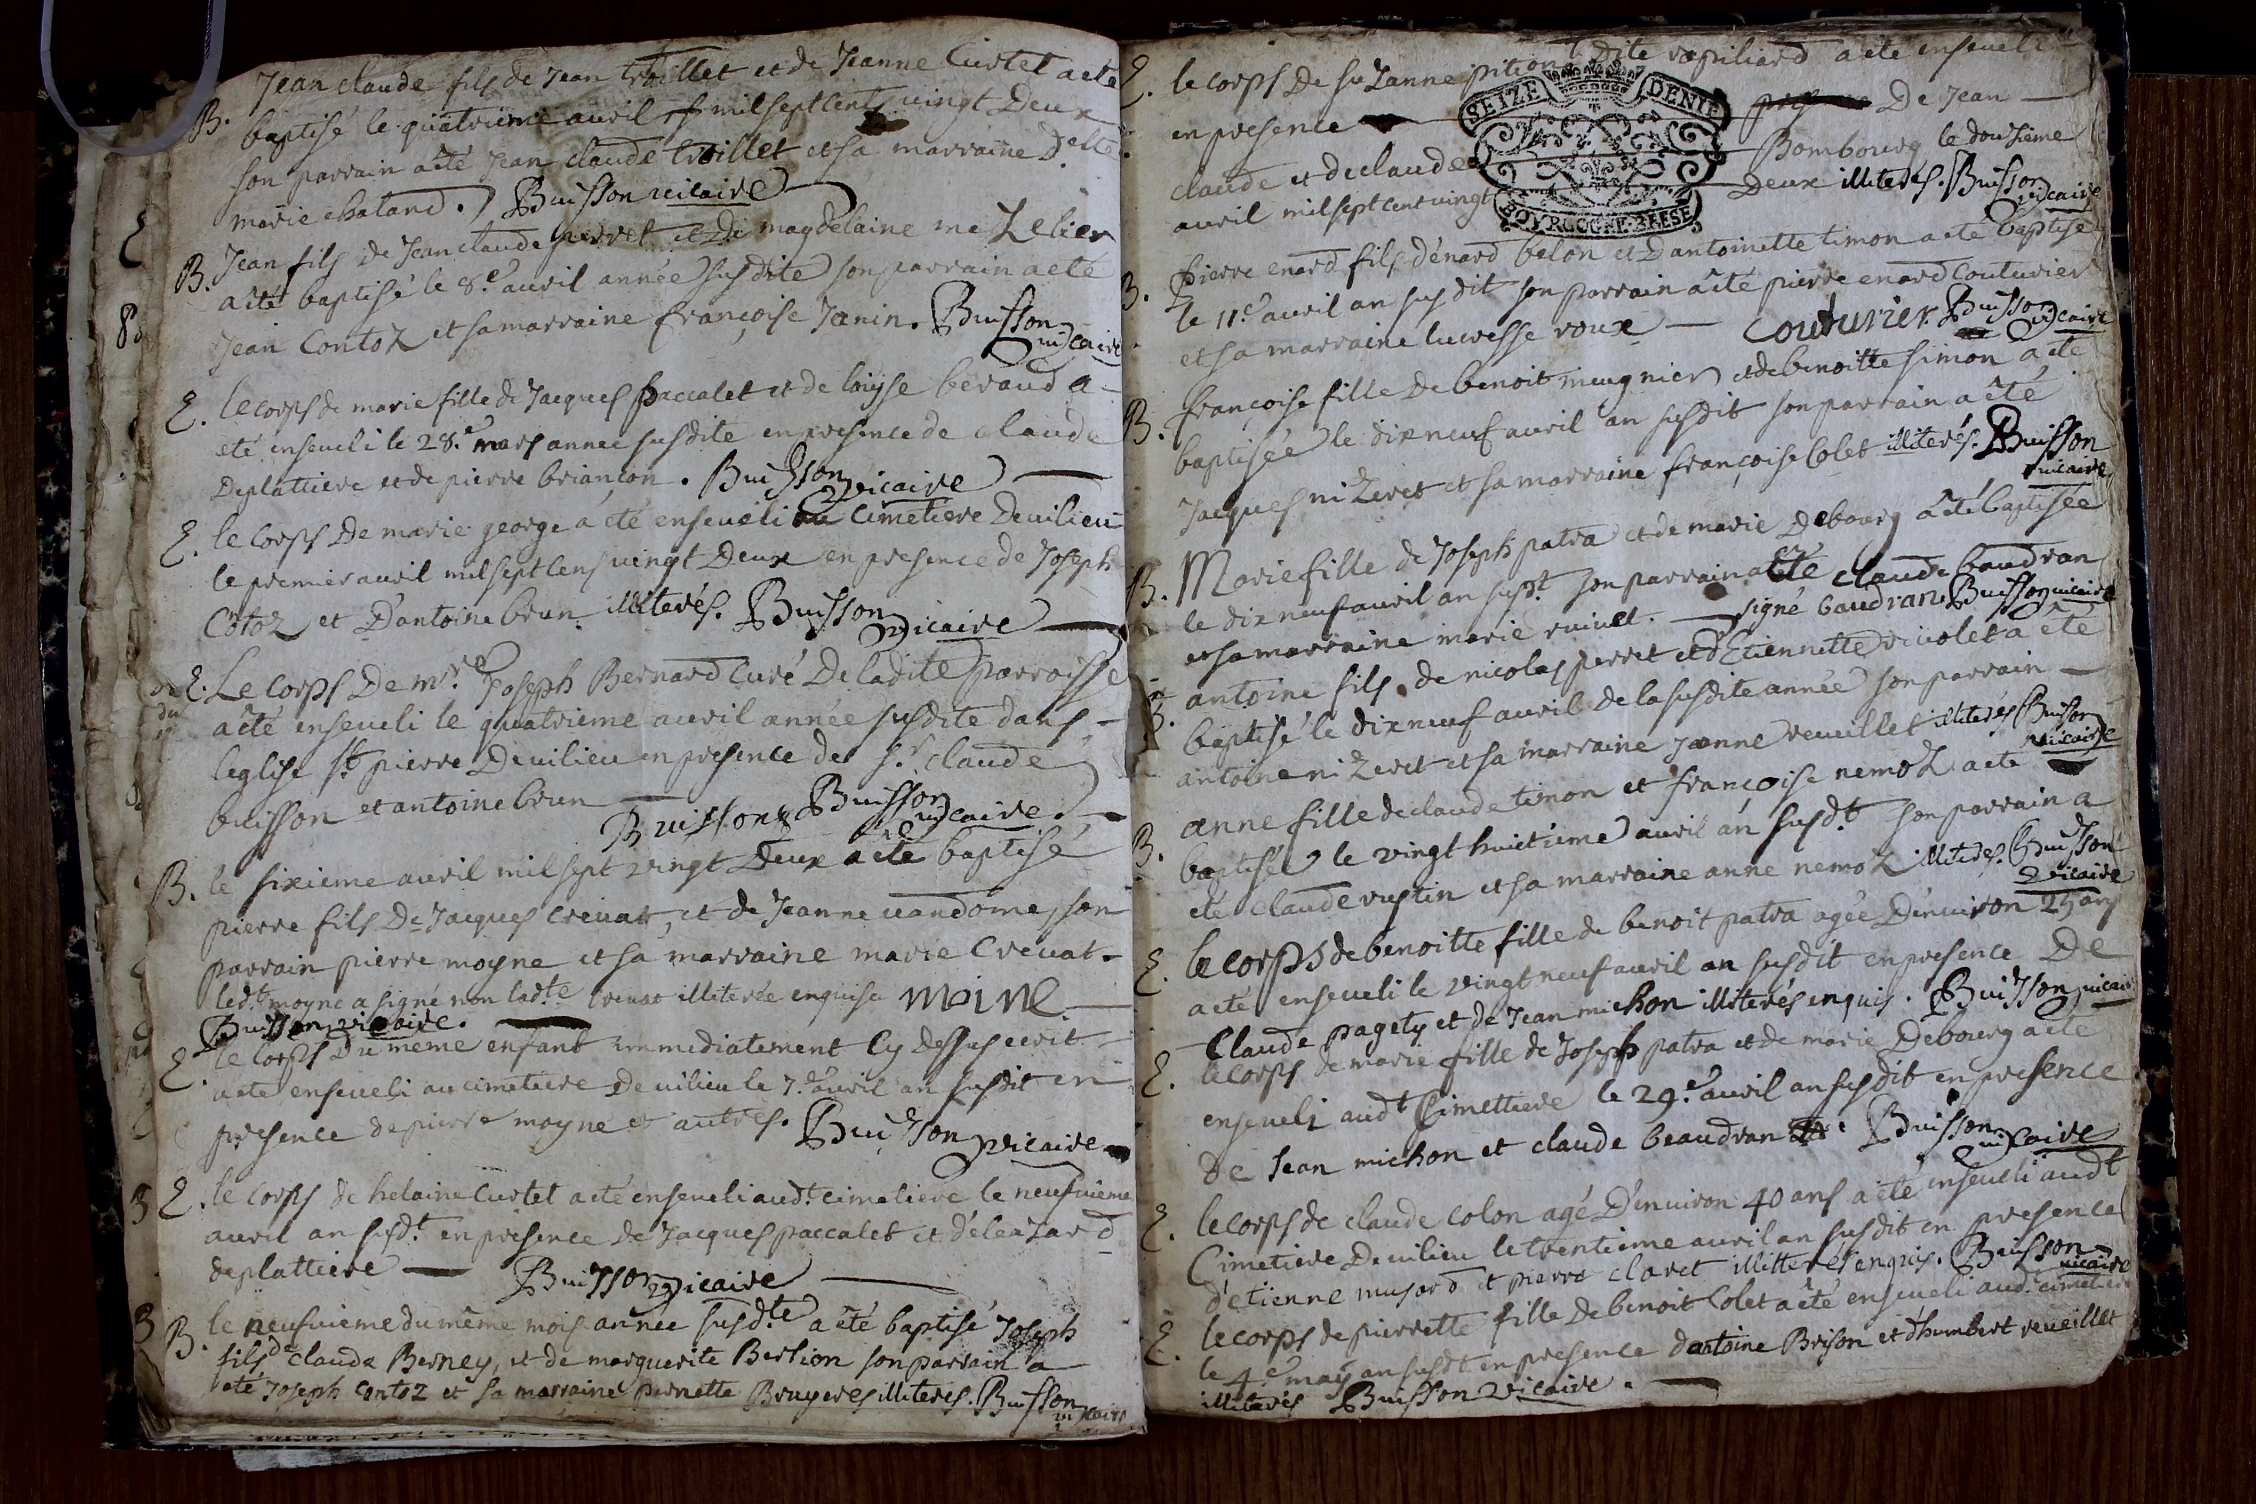 B. Jean claude fils de Jean troillet et de Jeanne Curtet a eté
baptisé le quatrieme avril mil sept cents vingt Deux
son parrain a eté Jean claude troillet et sa marraine D.elle
marie chatand. Buisson vicaire
B. Jean fils de Jean claude perret et De magdelaine meZelier
a été baptisé le 8.e avril année susdite son parrain a eté
Jean ContoZ et sa marraine françoise Janin. Buisson
vicaire
E. le corps de marie fille de Jacques paccalet et de loüyse beraud a
eté enseveli le 28.e mars année susdite en presence de claude
Deplattiere et de pierre briançon. Buisson vicaire
E. le corps De marie george a été enseveli au cimetiere De vilieu
le premier avril mil sept cens vingt Deux en presence de Joseph
CotoZ et D'antoine brun illiterés. Buisson
vicaire
E. Le corps De m.re Joseph Bernard Curé De ladite parroisse
a été enseveli le quatrieme avril année susdite dans
leglise st pierre De vilieu en presence de s.r claude
buisson et antoine brun
Buisson Buisson
vicaire.
B. le sixieme avril mil sept vingt Deux a eté baptisé
pierre fils De Jacques crevat, et de Jeanne vandome, son
parrain pierre moyne et sa marraine marie Crevat.
led.t moyne a signé non lad.te crevat illiterée enquise moine
Buisson vicaire.
E. le corps Du meme enfant immediatement Cy Dessus ecrit
a eté enseveli au cimetiere De vilieu le 7.e avril an susdit en
presence de pierre moyne et autres. Buisson vicaire
3 E. le corps de helaine Curtet a eté enseveli aud.t cimetiere le neufvieme
avril an susd.t en presence de Jacques paccalet et d'eleaZard
deplattiere Buisson vicaire
3 B. le neufvieme du même mois année susd.te a été baptisé Joseph
fils de claude Berney, et de marguerite Bertion son parrain a
eté Joseph contoZ et sa marraine pernette Bruyeres illiterés. Buisson
vicaire
E. le corps De suZanne pition Dite rapiliard a eté enseveli
en presence De Jean
claude et de claude Bombourg le douSieme
avril mil sept cent vingt Deux illiterés. Buisson
vicaire
SEIZE DENIE
BOVRGOGNE. BRESSE
B. pierre enard fils d'énard belon et D'antoinette timon a eté baptisé
le 11.e avril an susdit son parrain a eté pierre enard Couturier
et sa marraine lucresse roux couturier. Buisson
vicaire
B. françoise fille De benoit meugnier et de benoitte simon a eté
baptisée le dix neuf avril an susdit son parrain a été
Jacques niZeret et sa marraine françoise Colet illiterés. Buisson
vicaire
B. Marie fille de Joseph patra et de marie Debourg a été baptisée
le dix neuf avril an susd.t son parrain a été claude baudran
et sa marraine marie ruivet. signé baudran Buisson vicaire
B. antoine fils de nicolas perret et d'Etiennette rivolet a été
baptisé le dix neuf avril de la susdite année son parrain
antoine niZeret et sa marraine Janne reveillet illiterés Buisson
vicaire
B. anne fille de claude timon et françoise nemoZ a eté
baptisée le vingt huictieme avril an susd.t son parrain a
eté claude rustin et sa marraine anne nemoZ illiterés. Buisson
vicaire
E. le corps de benoitte fille de benoit patra agée D'environ 25 ans
a eté enseveli le vingt neuf avril an susdit en presence De
Claude pagety et de Jean michon illiterés enquis. Buisson vicaire
E. le corps de marie fille de Joseph patra et de marie Debourg a eté
enseveli aud.t Cimettiere le 29.e avril an susdit en presence
de Jean michon et claude beaudran. Buisson
vicaire
E. le corps de claude colon agé D'environ 40 ans a eté enseveli aud.t
Cimetiere De vilieu le trentieme avril an susdit en presence
d'etienne musard et pierre claret illitterés enquis. Buisson
vicaire
E. le corps de pierrette fille De benoit Colet a été enseveli aud.t cimetiere
le 4.e may an susd.t en presence d'antoine Brison et d'humbert reveillet
illiterés Buisson vicaire.